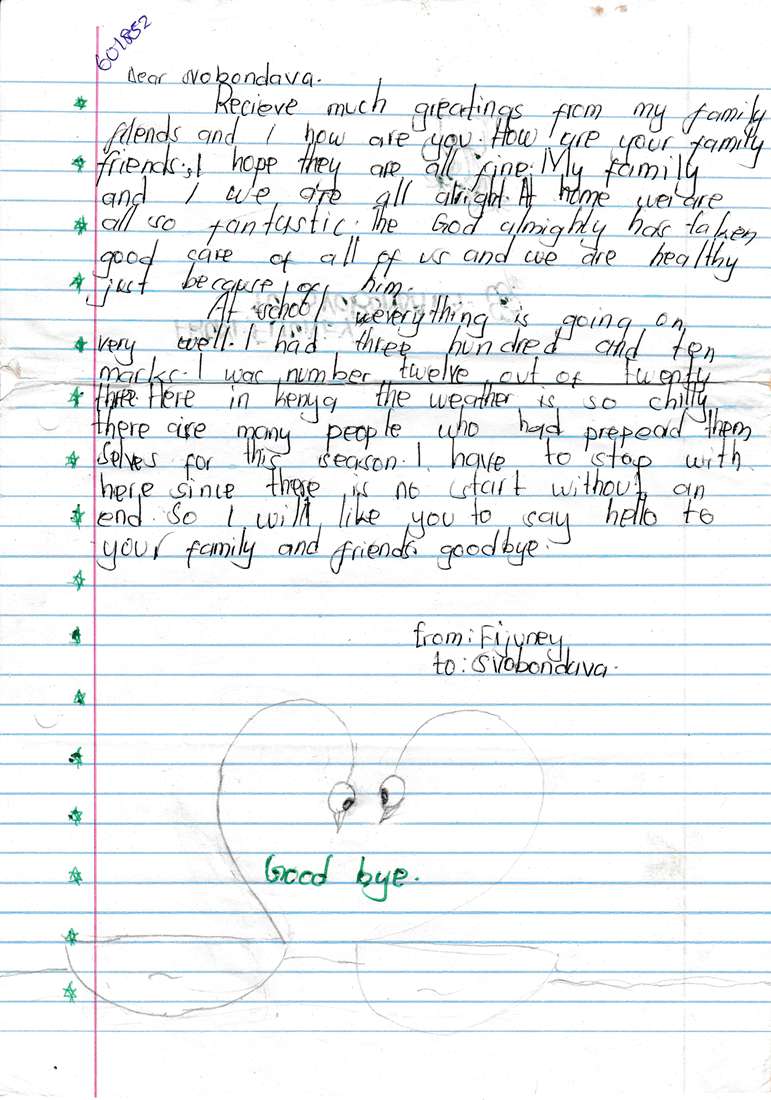 601852
Dear Svobondava.
Recieve much greatings from my family
friends and I how are you. How are your family
friends, I hope they are all fine. My family
and I we are all alright. At home we are
all so fantastic. The God almighty has taken
good care of all of us and we are healthy
just because of him.
At school everything is going on
very well. I had three hundred and ten
marks. I was number twelve out of twenty
three. Here in kenya the weather is so chilly
there are many people who had prepead them
selves for this season. I have to stop with
here since there is no start without an
end. So I will like you to say hello to
your family and friends. goodbye.
from: Fijyney
to: Svobondava.
Good bye.